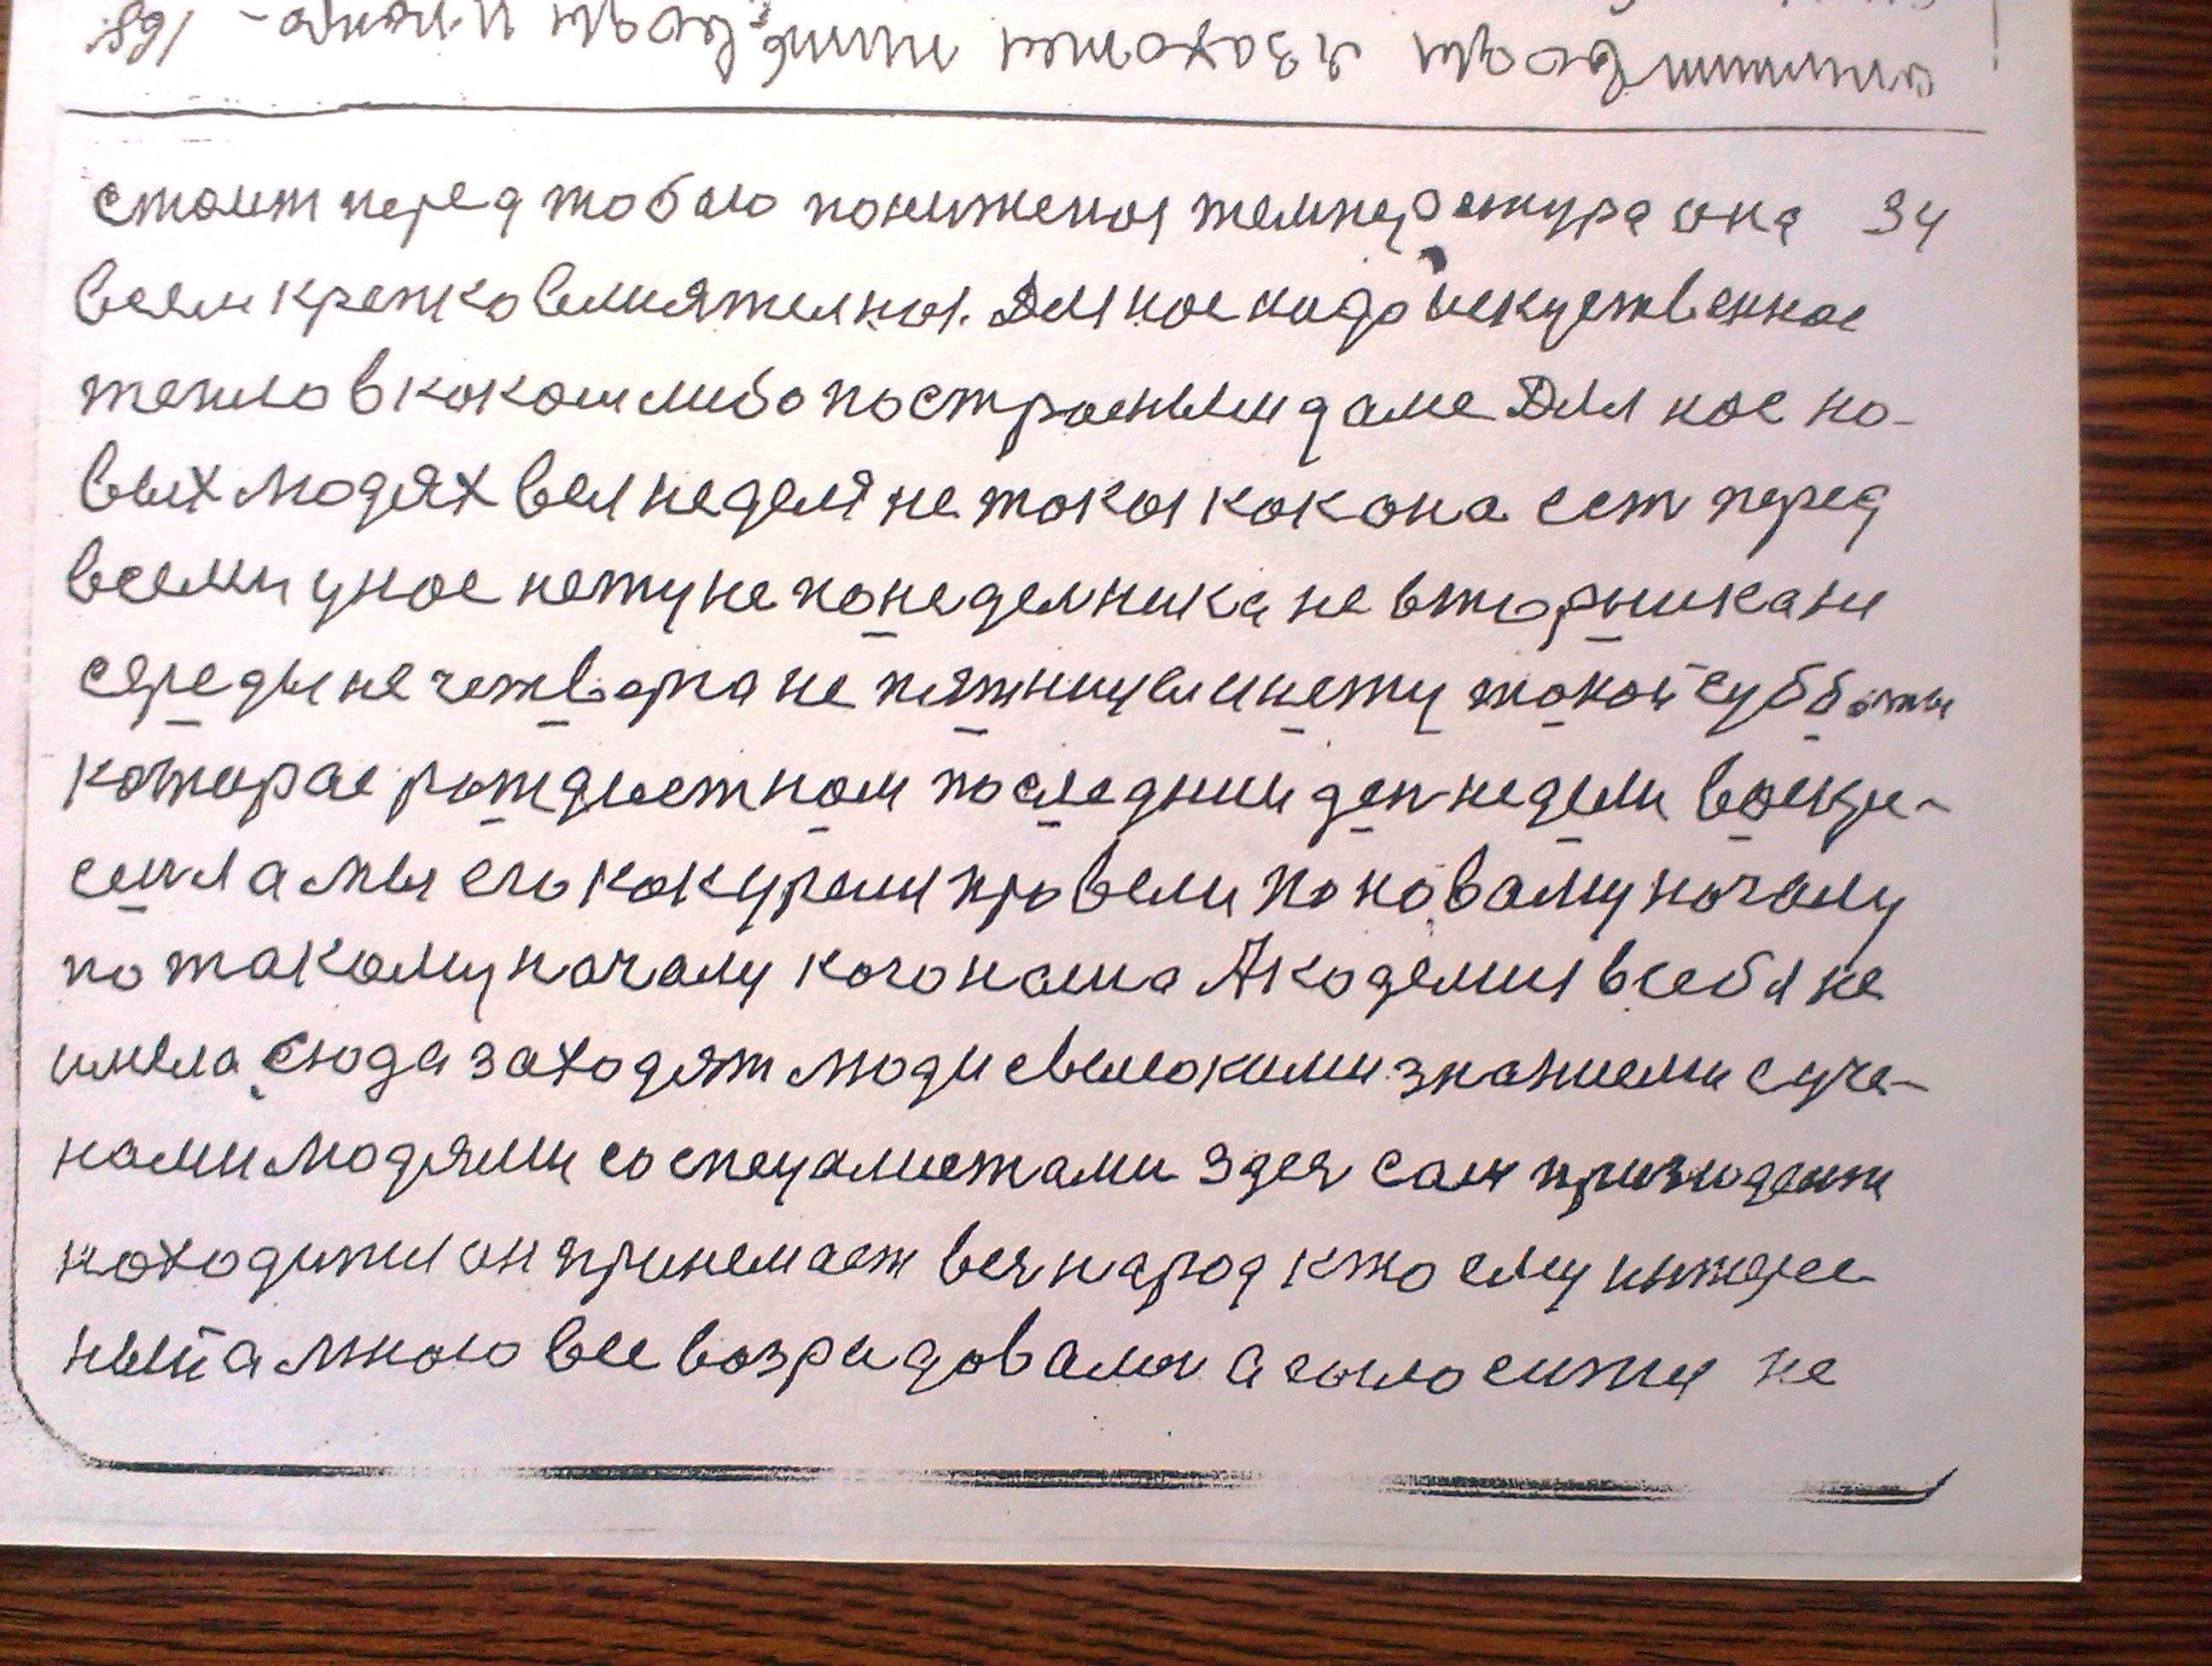 стоит перед тобаю пониженоя температура она 34
всем крепко влиятелноя. Для нос надо искуственное
тепло в коком либо построеным даме Для нос но-
вых людях вся неделя не токоя кок она ест перед
всеми у нос нету не понеделника не вторника не
середы не четверга не пятницы и нету токой субботы
которае рождает ном последний ден недели воскре-
сеня а мы его кок купели провели по новаму началу
по такому началу кого наша Академия в себя не
имела Сюда заходят люди с высокими знаниеми с уче-
номи людями со специалистами Здес сам призидент
находится он принемает вес народ кто ему интерес
ный а мною все возрадовалис а соло сижу не